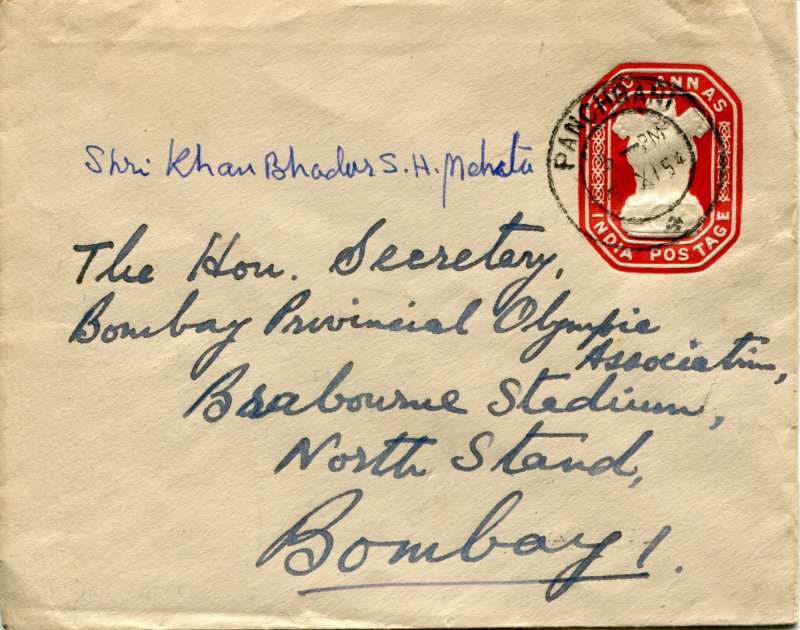 TWO ANNAS
INDIA POSTAGE
PANCHGANI
PM
XI 54
Shri Khan Bhadur S. H. Mehata
The Hon. Secretary,
Bombay Provincial Olympic
Association,
Brabourne Stadium,
North Stand,
Bombay 1.